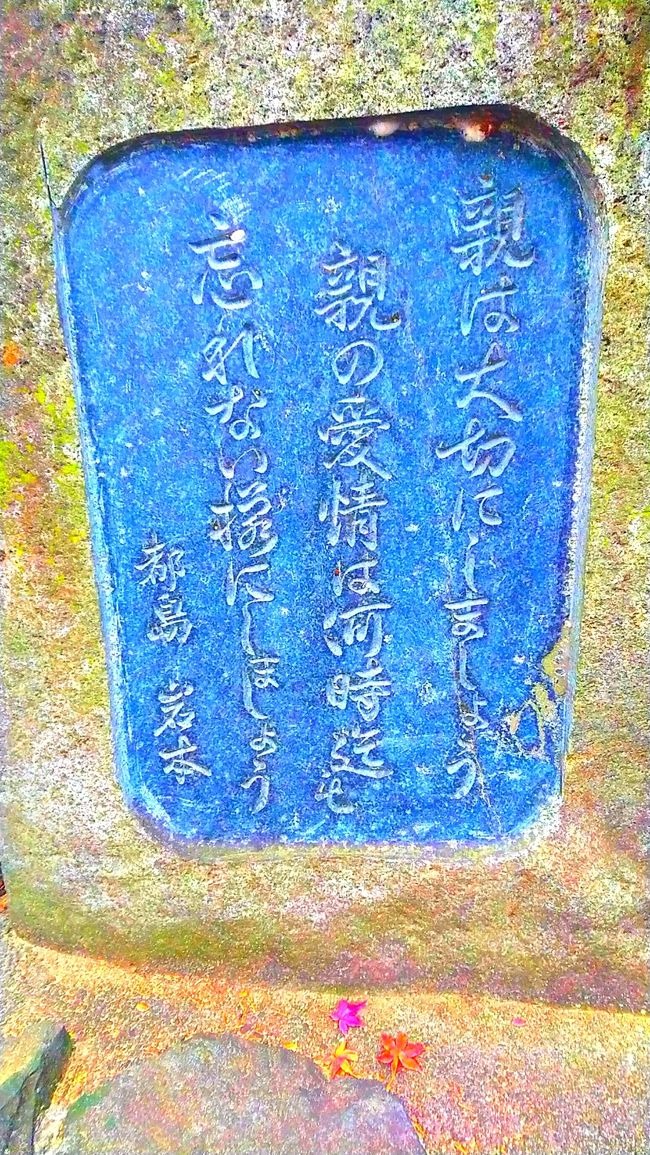 親は大切にしましょう
親の愛情は何時迄も
忘れない様にしましょう
都島 岩本